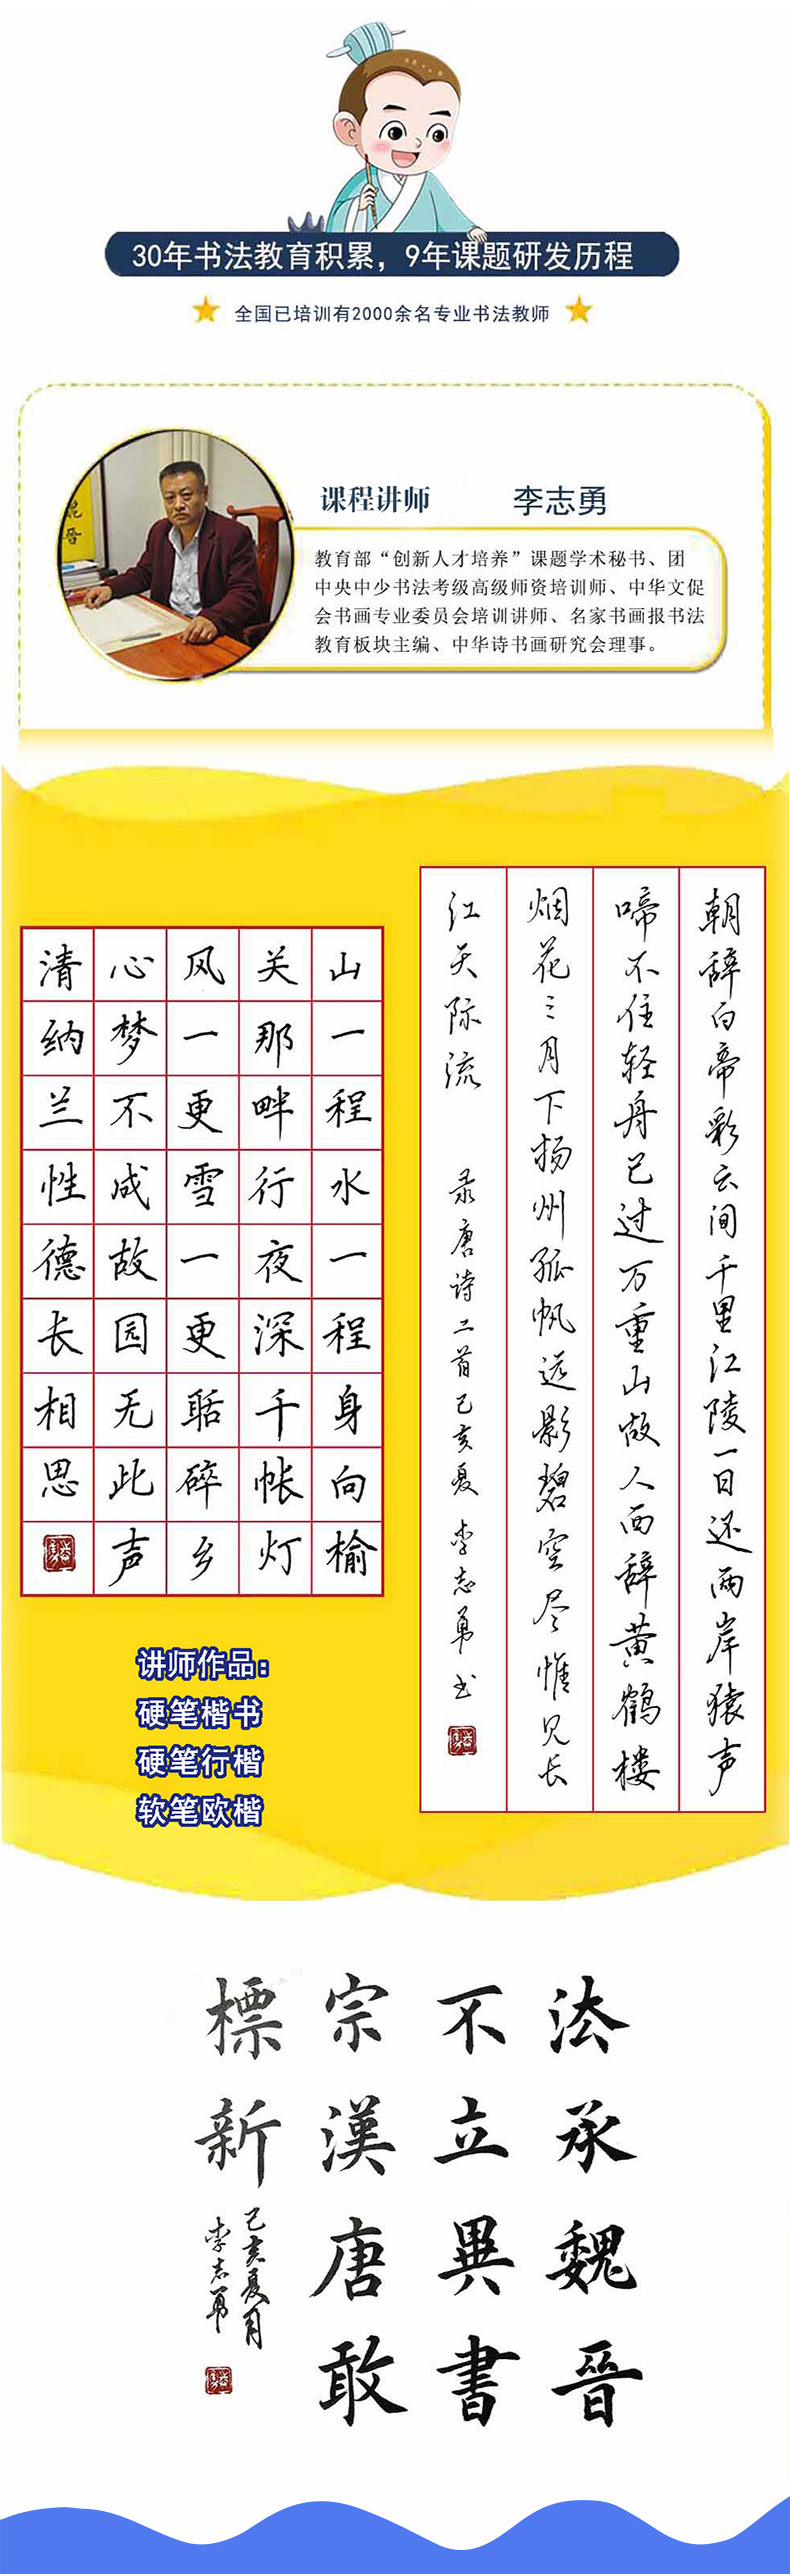 30年书法教育积累，9年课题研发历程
全国已培训有2000余名专业书法教师
魏晋
课程讲师
李志勇
教育部“创新人才培养”课题学术秘书、团
中央中少书法考级高级师资培训师、中华文促
会书画专业委员会培训讲师、名家书画报书法
教育板块主编、中华诗书画研究会理事。
朝辞白帝彩云间千里江陵一日还两岸猿声
啼不住轻舟已过万重山故人西辞黄鹤楼
烟花三月下扬州孤帆远影碧空尽惟见长
江天际流 录唐诗二首己亥夏 李志勇书
山一程水一程身向榆
关那畔行夜深千帐灯
风一更雪一更聒碎乡
心梦不成故园无此声
清纳兰性德长相思
讲师作品：
硬笔楷书
硬笔行楷
软笔欧楷
法承魏晉
不立異書
宗漢唐敢
標新
己亥夏月
李志勇